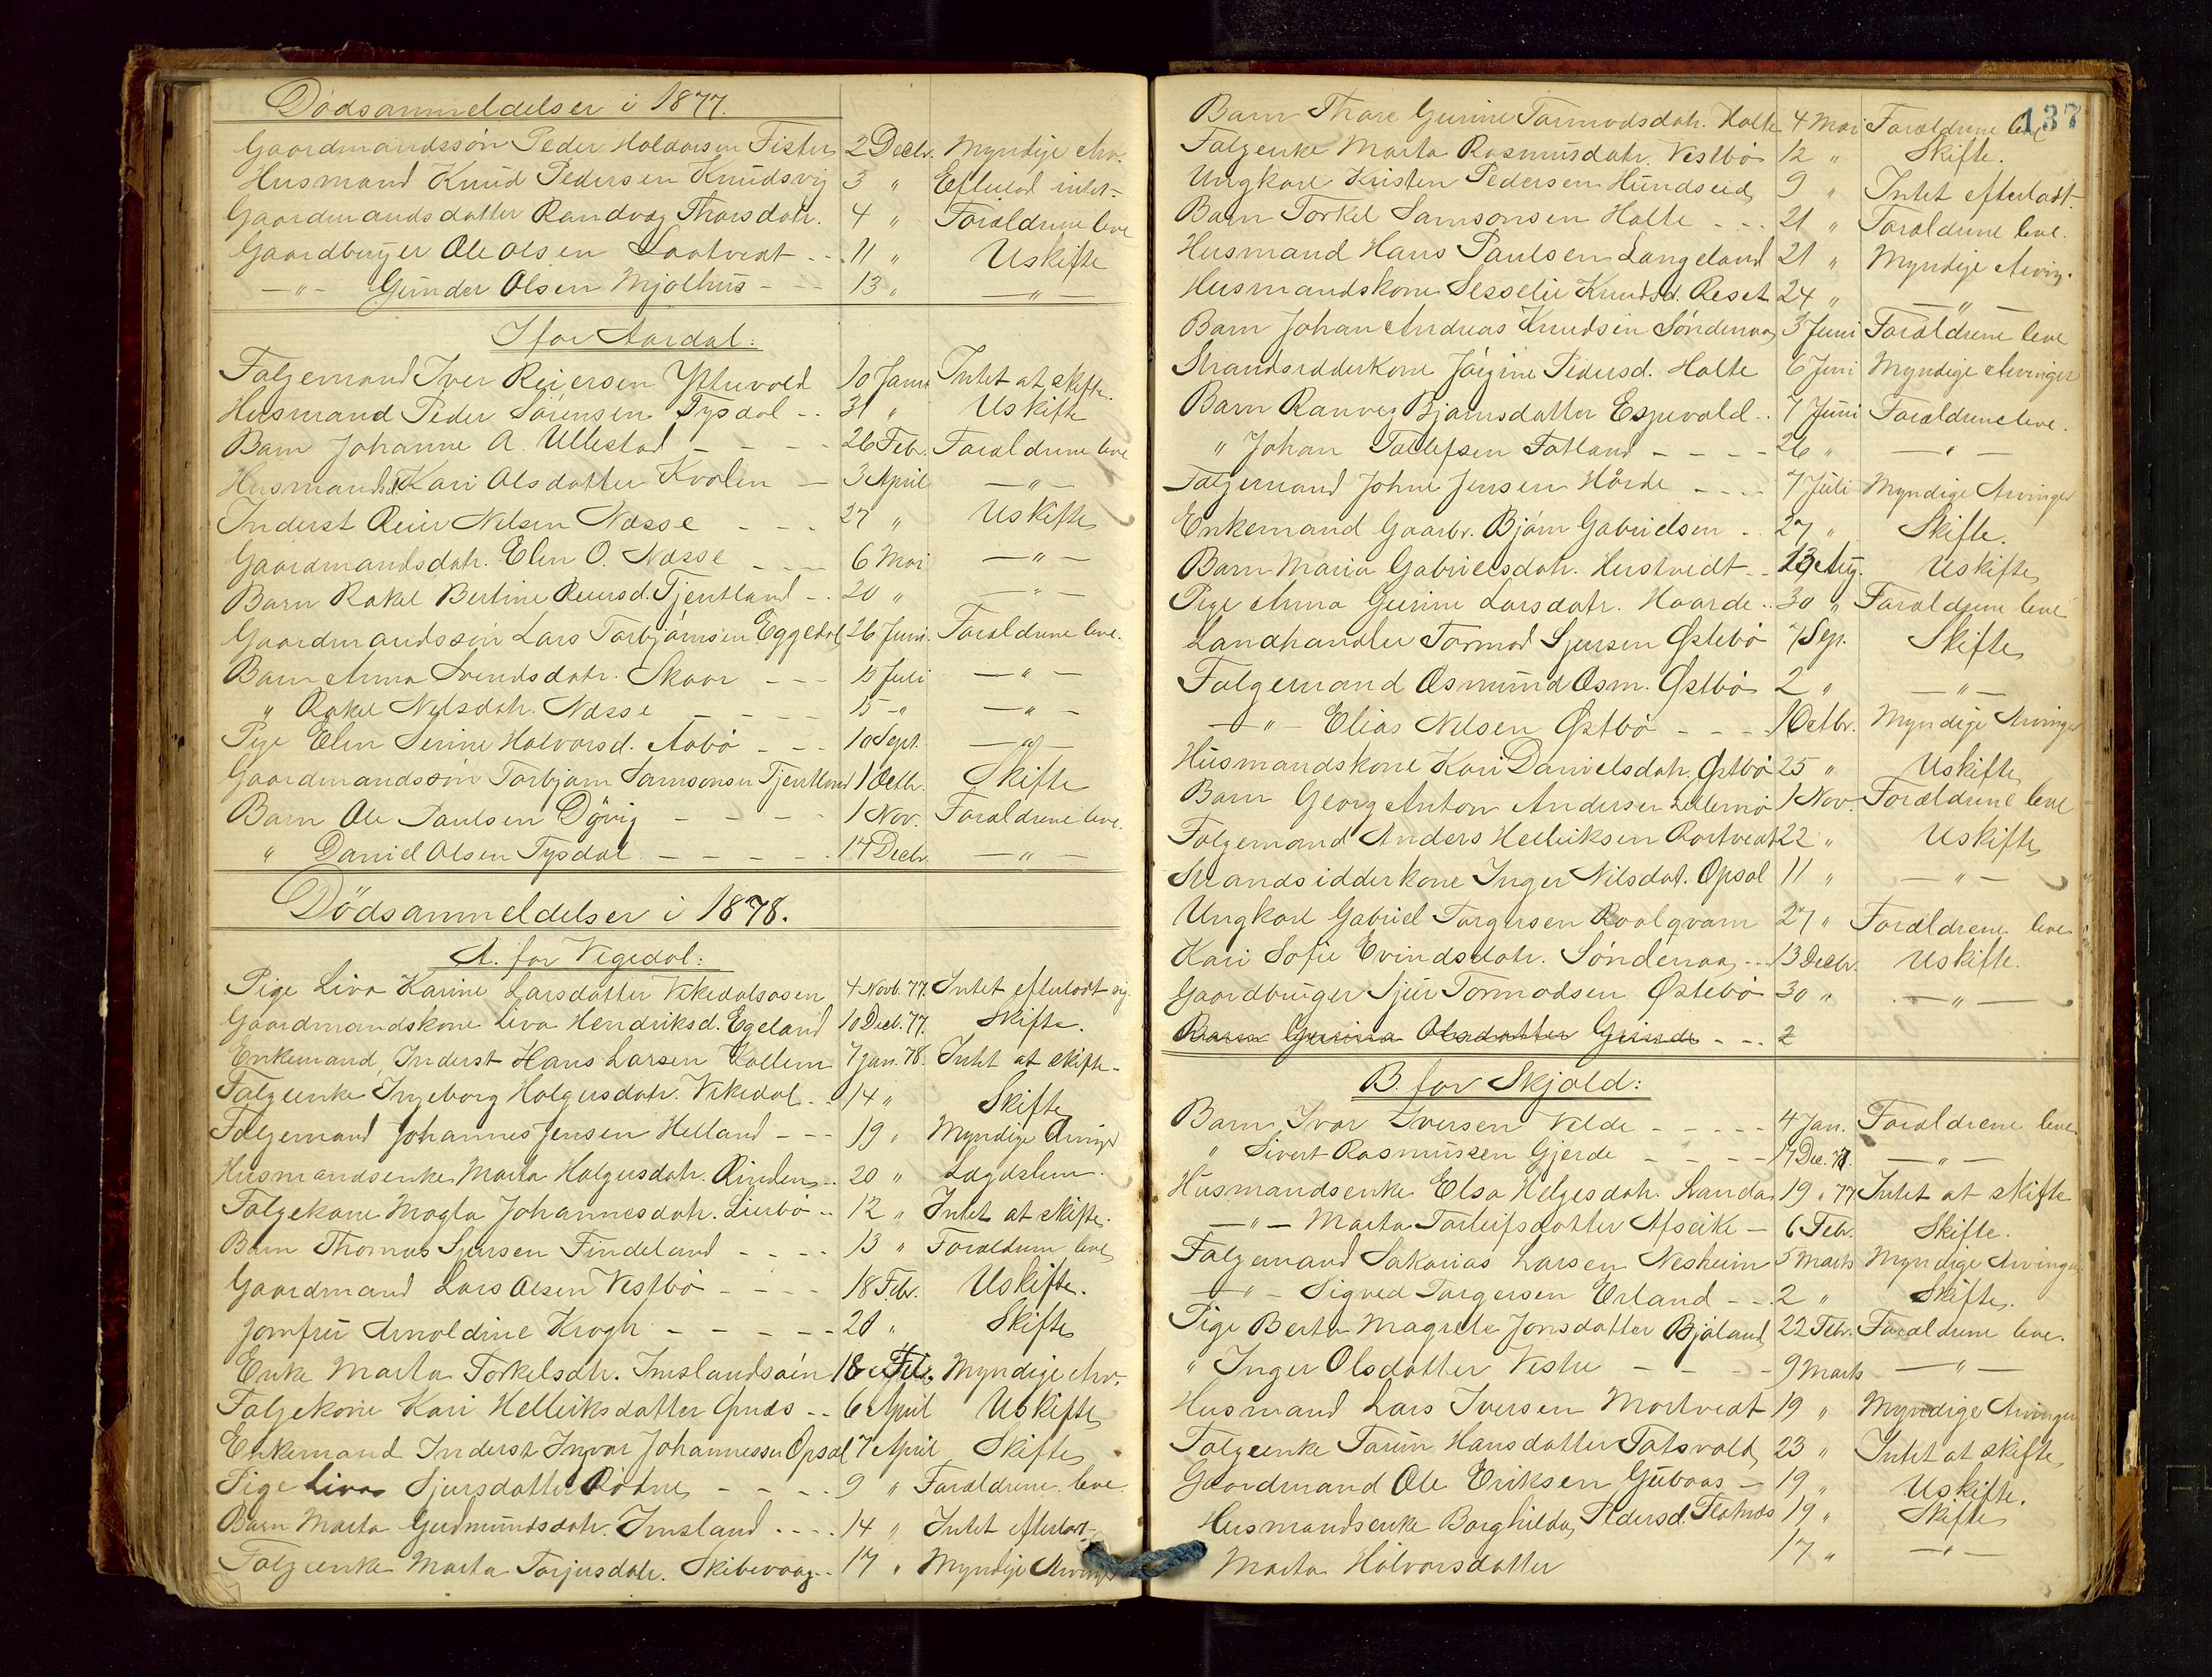 Dödsanmeldelser i 1877.
Gaardmandssön Peder Haldorsen Fister 2 Decbr. Myndige Arv.
Husmand Knud Pedersen Knudsvig 3 " Efterlod intet
Gaardmandsdatter Randvag Thorsdatr. 4 " Forældrene leve
Gaardbruger Ole Olsen Laatvedt - - 11 " Uskifte
—"— Gunder Olsen Mjølhus - - - 13 " —"—
I for Aardal:
Folgemand Iver Reiersen Yttervold 10 Janr. Intet at skifte.
Husmand Peder Sörensen Tysdal - - 31 " Uskifte
Barn Johanne A. Ullestad - - - - 26 Febr. Forældrene leve
Husmandsd. Kari Olsdatter Kvolen - 3 April —"—
Inderst Reier Nelsen Næsse - - - 27 " Uskifte
Gaardmandsdatr. Elen O. Næsse - - - 6 Mai —"—
Barn Rakel Bertine Reiersd. Tjentland - - 20 " —"—
Gaardmandssön Lars Torbjörnsen Eggedal 26 Juni. Forældrene leve.
Barn Anna Svendsdatr. Skaar - - - 10 Juli —"—
" Rakel Nelsdatr. Næsse - - - - 15 " —"—
Pige Elen Serine Halvorsd. Aabö - - - 10 Sept. —"—
Gaardmandssön Torbjørn Samsonsen Tjentland 1 Octbr. Skifte
Barn Ole Paulsen Dövig - - - - 1 Nov. Forældrene leve.
" Daniel Olsen Tysdal - - - - - 14 Decbr. —"—
Dödsanmeldelser i 1878.
A. for Vigedal:
Pige Liva Karine Larsdatter Vikedalsosen 4 Novb. 77. Intet efterladt sig.
Gaardmandskone Liva Hendriksd. Egeland 10 Decb. 77. Skifte.
Enkemand, Inderst Hans Larsen Kollem 7 Jan. 78. Intet at skifte.
Folgeenke Ingeborg Holgersdatr. Vikedal - - 14 " Skifte
Folgemand Johannes Jensen Helland - - - 19 " Myndige Arvinger
Husmandsenke Marta Holgersdatr. Rinden - - 20 " Lægdslem.
Folgekone Magla Johannesdatr. Lierbö - - 12 " Intet at skifte.
Barn Thomas Sjursen Findeland - - - - 13 " Forældrene leve
Gaardmand Lars Olsen Vestbö - - - - 18 Febr. Uskifte.
Jomfru Arnoldine Krogh - - - - - 20 " Skifte
Enke Marta Torkelsdtr. Imslandsöen 18 Feb. Myndige Arv.
Folgekone Kari Helleiksdatter Opnds - - 6 April Uskifte
Enkemand Inderst Ingvar Johannessen Opsal 7 April Skifte
Pige Liva Sjursdatter Rödne - - - - 9 " Forældrene leve.
Barn Marta Gudmundsdatr. Imsland - - - - 14 " Intet efterladt
Folgeenke Marta Torjusdatr. Skibevaag - - 17 " Myndige Arvinger
137
Barn Thore Gurine Tormodsdatr. Halte 4 Mai Forældrene leve
Folgenke Marta Rasmusdatr. Vestbö 12 " Skifte.
Ungkarl Kristen Pedersen Hundseid 9 " Intet efterladt.
Barn Torkel Samsonsen Halte - - - 21 " Forældrene leve.
Husmand Hans Paulsen Langeland 21 " Myndige Arving.
Husmandskone Sesselie Knudsd. Reset 24 " —"—
Barn Johan Andreas Knudsen Sönderaa 3 Juni Forældrene leve
Strandsidderkone Jörgine Pedersd. Halte 6 Juni Myndige Arvinger
Barn Ranveg Bjørnsdatter Espevold - - 7 Juni Forældrene leve.
" Johan Tollefsen Fatland - - - - 26 " —"—
Folgemand Johne Jensen Hörde - - - - 7 Juli Myndige Arvinger
Enkemand Gaarbr. Bjørn Gabrielsen - - 27 " Skifte.
Barn Maria Gabrielsdatr. Hustvedt - - 13 Aug. Uskifte
Pige Anna Gurine Larsdatr. Haarde - - 30 " Forældrene leve
Landhandler Tormod Sjursen Østebö 7 Sep. Skifte
Folgemand Osmund Osm. Østbö 2 " —"—
—"— Elias Nelsen Østbö - - - 1 Octbr. Myndige Arvinger
Husmandskone Kari Danielsdatr. Østbö 25 " Uskifte
Barn Georg Anton Andersen Lellemö 1 Nov. Forældrene leve
Folgemand Anders Helleiksen Rortvedt 22 " Uskifte
Strandsidderkone Inger Nilsdat. Opsal 11 " —"—
Ungkarl Gabriel Torgersen Roalqvam 27 " Forældrene leve
Kari Sofie Evindsdatr. Sönderaa - - 13 Decbr. Uskifte.
Gaardbruger Sjur Tormodsen Østebö 30 " —"—
Barn Gurina Olsdatter Grinde - - - 2
B. for Skjold:
Barn Ivar Iversen Velde - - - - - 4 Jan. Forældrene leve.
" Sivert Rasmussen Gjerde - - - - 17 Dec. 77. —"—
Husmandsenke Elsa Helgesdatr. Svanda 19 " 77 Intet at skifte
—"— Marta Torleifsdatter Afseik - 6 Febr. Skifte.
Folgemand Sakarias Larsen Nesheim 5 Marts Myndige Arvinger
—"— Sigved Torgersen Erland - - - 2 " Skifte.
Pige Berta Magrete Jonsdatter Bjöland 22 Febr. Forældrene leve.
" Inger Olsdatter Vestre - - - 9 Marts —"—
Husmand Lars Iversen Mortvedt 19 " Myndige Arvinger
Folgeenke Torim Hansdatter Totsvold 23 " Intet at skifte
Gaardmand Ole Eriksen Gubaas - 19 " Uskifte.
Husmandsenke Borghilda Pedersd. Flotnes 19 " Skifte
Marta Halvorsdatter 17 " —"—